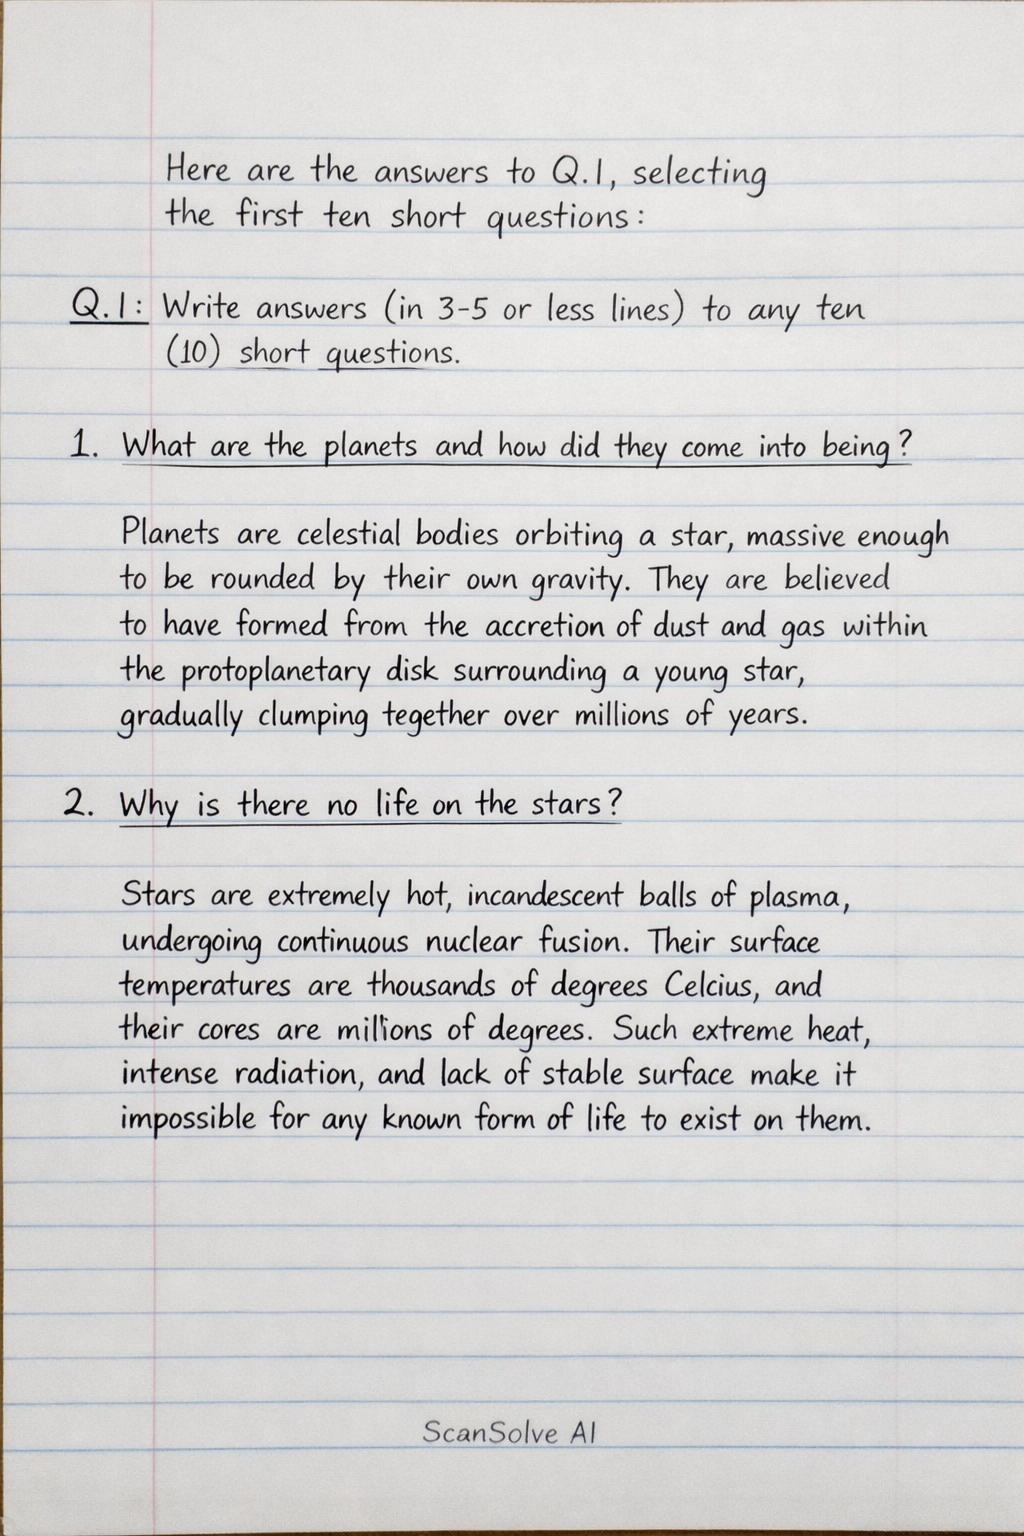 Here are the answers to Q.1, selecting
the first ten short questions:
Q.1: Write answers (in 3-5 or less lines) to any ten
(10) short questions.
1. What are the planets and how did they come into being?
Planets are celestial bodies orbiting a star, massive enough
to be rounded by their own gravity. They are believed
to have formed from the accretion of dust and gas within
the protoplanetary disk surrounding a young star,
gradually clumping tegether over millions of years.
2. Why is there no life on the stars?
Stars are extremely hot, incandescent balls of plasma,
undergoing continuous nuclear fusion. Their surface
temperatures are thousands of degrees Celcius, and
their cores are millions of degrees. Such extreme heat,
intense radiation, and lack of stable surface make it
impossible for any known form of life to exist on them.
ScanSolve AI